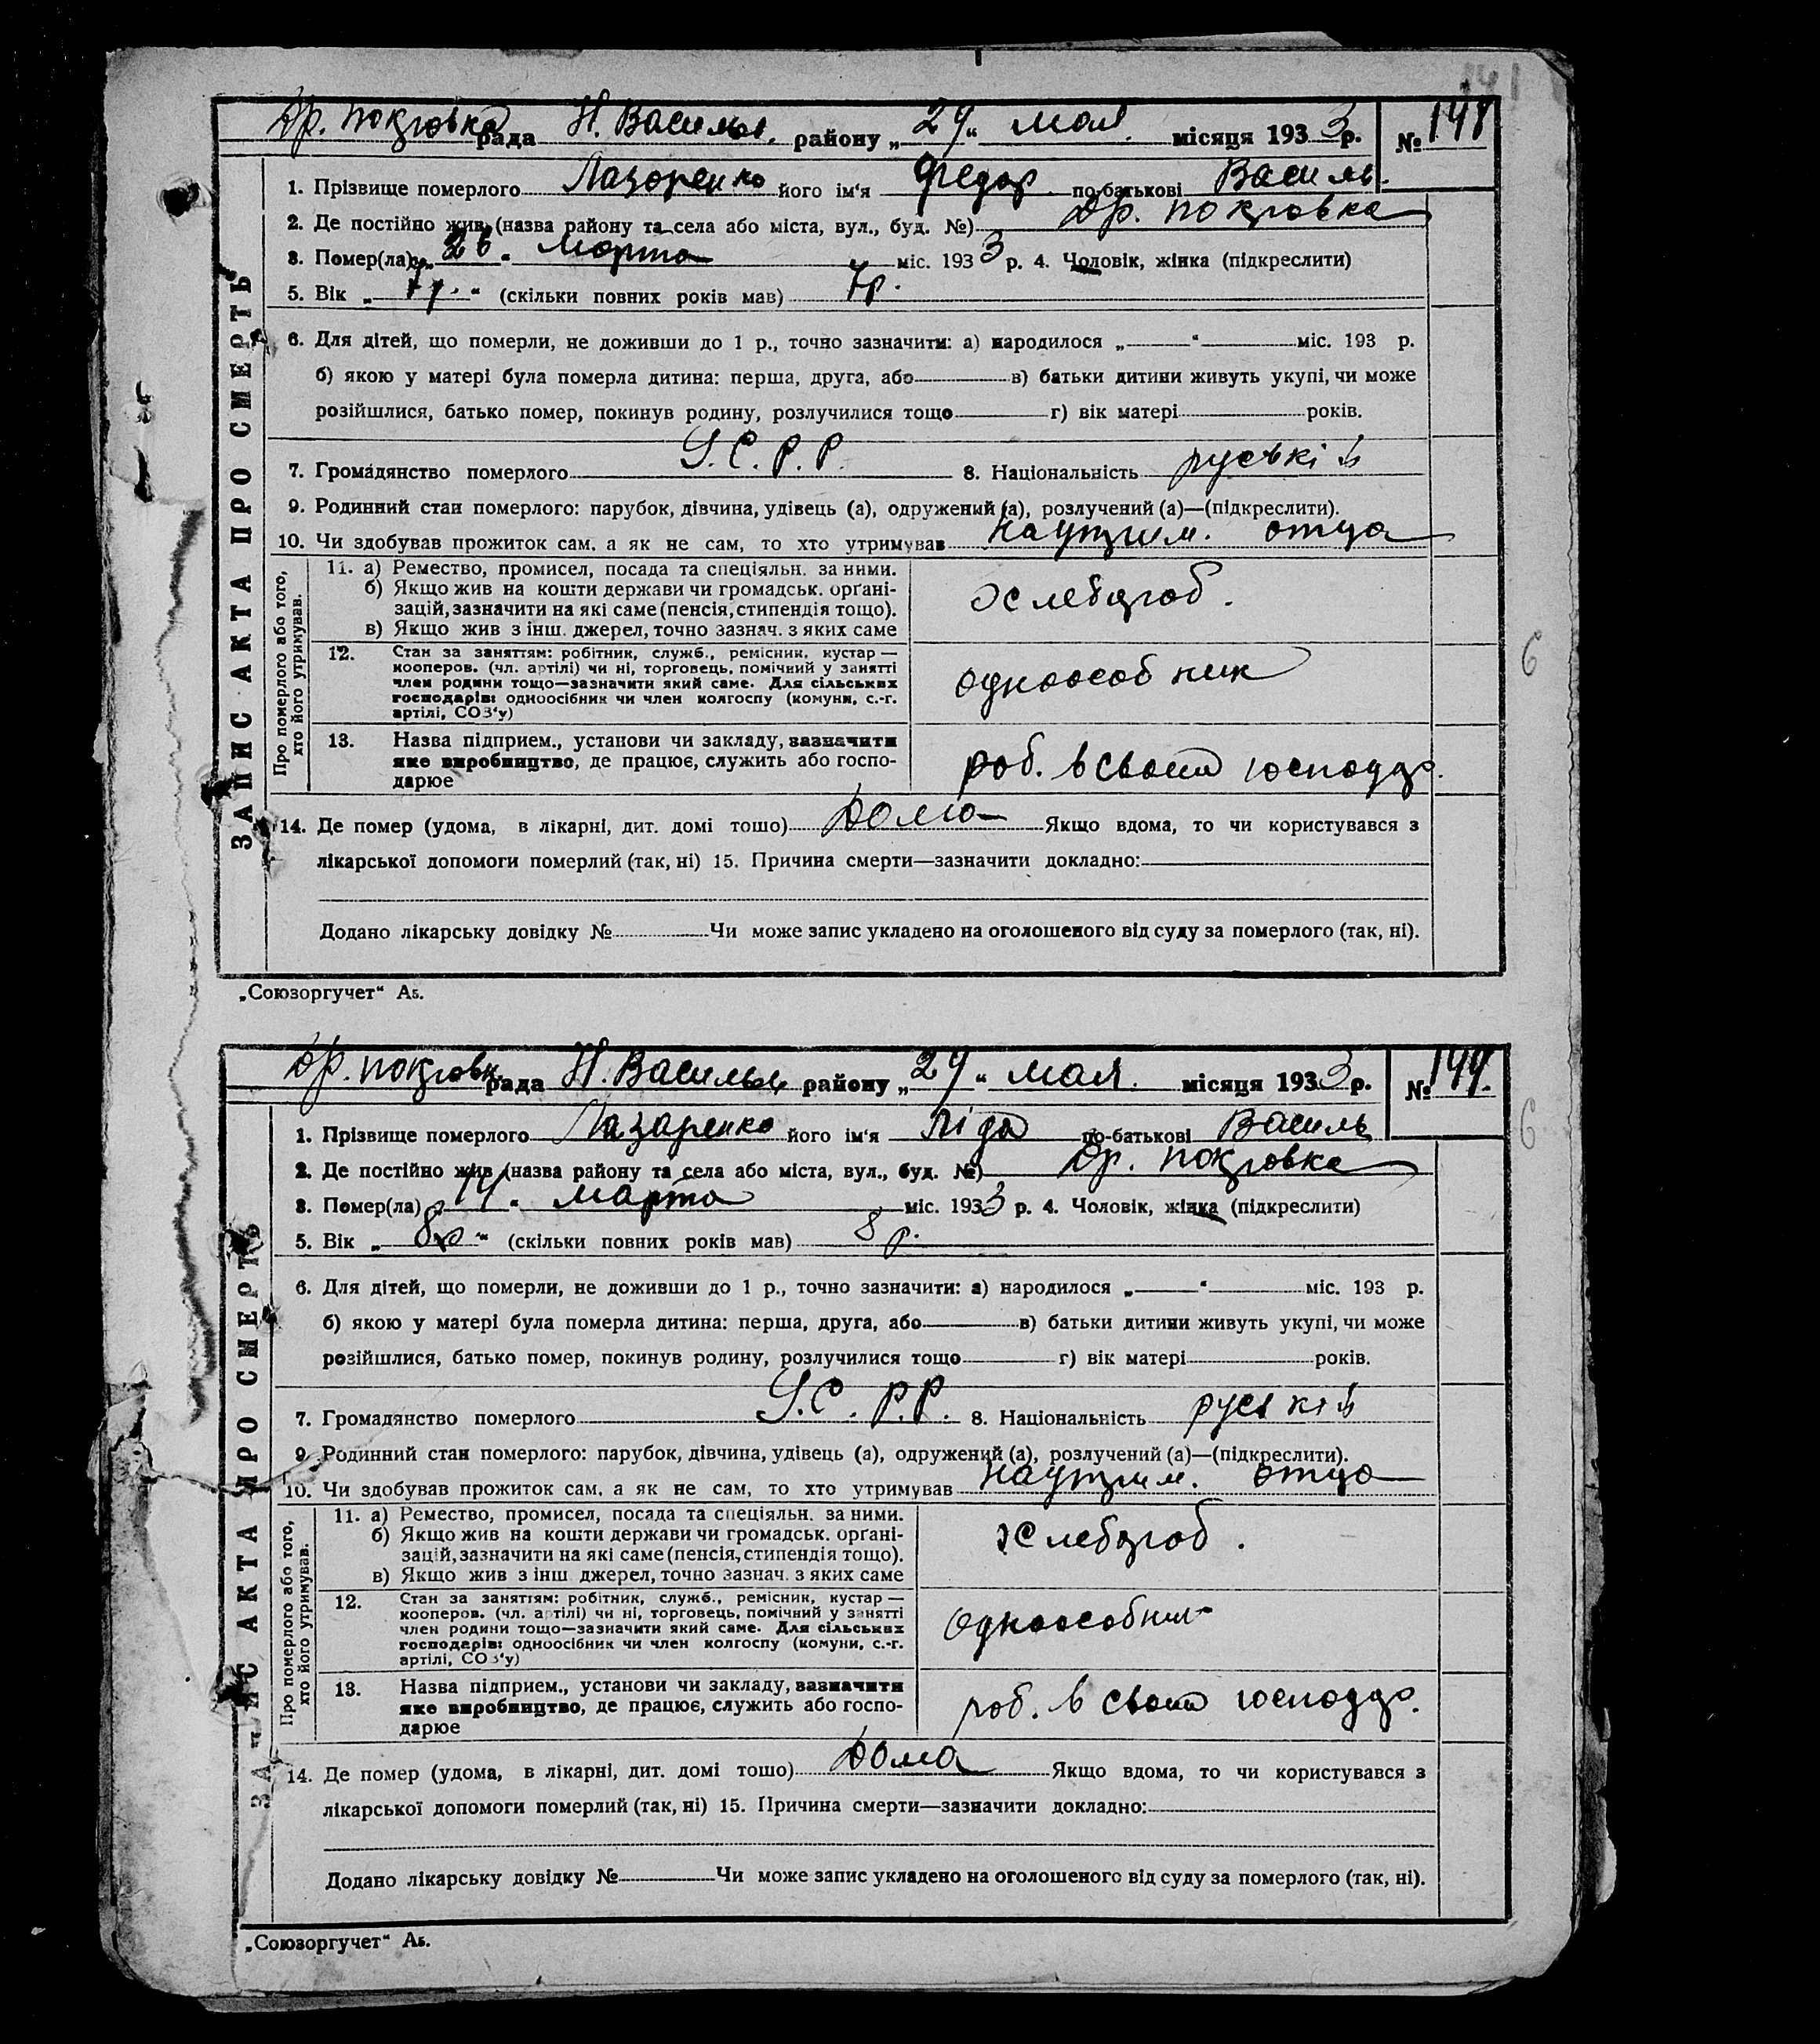 141
Др. покровка рада Н. Василь. району „29“ мая місяця 1933 р. № 148
ЗАПИС АКТА ПРО СМЕРТЬ
1. Прізвище померлого Лазоренко його ім'я Федор по-батькові Василь.
2. Де постійно жив (назва району та села або міста, вул., буд. №) Др. покровка
3. Помер(ла) „26“ марта міс. 1933 р. 4. Чоловік, жінка (підкреслити)
5. Вік „7р.“ (скільки повних років мав) 7р.
6. Для дітей, що померли, не доживши до 1 р., точно зазначити: а) народилося „ “ міс. 193 р.
б) якою у матері була померла дитина: перша, друга, або в) батьки дитини живуть укупі, чи може
розійшлися, батько помер, покинув родину, розлучилися тощо г) вік матері років.
7. Громадянство померлого У.С.Р.Р. 8. Національність руський
9. Родинний стан померлого: парубок, дівчина, удівець (а), одружений (а), розлучений (а)—(підкреслити).
10. Чи здобував прожиток сам, а як не сам, то хто утримував на утрим. отца
Про померлого або того,
хто його утримував.
11. а) Ремество, промисел, посада та спеціяльн. за ними.
б) Якщо жив на кошти держави чи громадськ. орґані-
зацій, зазначити на які саме (пенсія, стипендія тощо).
в) Якщо жив з інш. джерел, точно зазнач. з яких саме
хлебороб.
12. Стан за заняттям: робітник, служб., ремісник, кустар —
кооперов. (чл. артілі) чи ні, торговець, помічний у занятті
член родини тощо—зазначити який саме. Для сільських
господарів: одноосібник чи член колгоспу (комуни, с.-г.
артілі, СОЗ'у)
одноособник
6
13. Назва підприєм., установи чи закладу, зазначити
яке виробництво, де працює, служить або госпо-
дарює
роб. в своєм господар.
14. Де помер (удома, в лікарні, дит. домі тошо) дома Якщо вдома, то чи користувався з
лікарської допомоги померлий (так, ні) 15. Причина смерти—зазначити докладно:
Додано лікарську довідку № Чи може запис укладено на оголошеного від суду за померлого (так, ні).
„Союзоргучет“ А5.
Др. покровк. рада Н. Василь району „29“ мая. місяця 1933 р. № 149.
ЗАПИС АКТА ПРО СМЕРТЬ
1. Прізвище померлого Лазаренко його ім'я Ліда по-батькові Василь
6
2. Де постійно жив (назва району та села або міста, вул., буд. №) Др. покровка
3. Помер(ла) „14“ марта міс. 1933 р. 4. Чоловік, жінка (підкреслити)
5. Вік „8р“ (скільки повних років мав) 8 р.
6. Для дітей, що померли, не доживши до 1 р., точно зазначити: а) народилося „ “ міс. 193 р.
б) якою у матері була померла дитина: перша, друга, або в) батьки дитини живуть укупі, чи може
розійшлися, батько помер, покинув родину, розлучилися тощо г) вік матері років.
7. Громадянство померлого У.С.Р.Р. 8. Національність руський
9. Родинний стан померлого: парубок, дівчина, удівець (а), одружений (а), розлучений (а)—(підкреслити).
10. Чи здобував прожиток сам, а як не сам, то хто утримував на утрим. отца
Про померлого або того,
хто його утримував.
11. а) Ремество, промисел, посада та спеціяльн. за ними.
б) Якщо жив на кошти держави чи громадськ. орґані-
зацій, зазначити на які саме (пенсія, стипендія тощо).
в) Якщо жив з інш джерел, точно зазнач. з яких саме
хлебороб.
12. Стан за заняттям: робітник, служб., ремісник, кустар —
кооперов. (чл. артілі) чи ні, торговець, помічний у занятті
член родини тощо—зазначити який саме. Для сільських
господарів: одноосібник чи член колгоспу (комуни, с.-г.
артілі, СОЗ'у)
одноособник
13. Назва підприєм., установи чи закладу, зазначити
яке виробництво, де працює, служить або госпо-
дарює
роб. в своєм господар.
14. Де помер (удома, в лікарні, дит. домі тошо) дома Якщо вдома, то чи користувався з
лікарської допомоги померлий (так, ні) 15. Причина смерти—зазначити докладно:
Додано лікарську довідку № Чи може запис укладено на оголошеного від суду за померлого (так, ні).
„Союзоргучет“ А5.